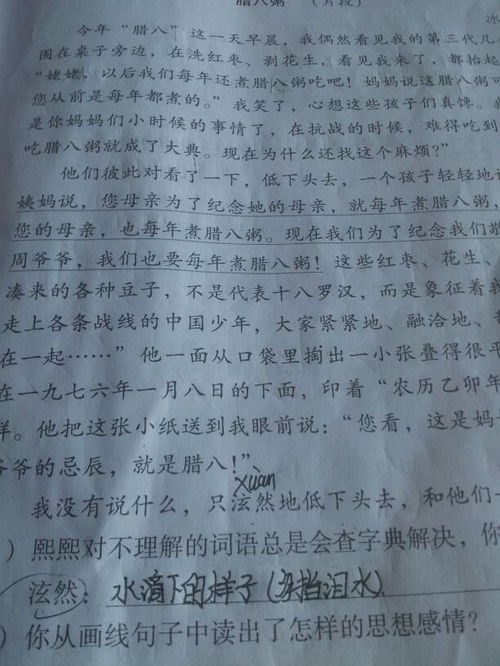 腊八粥 （片段）
冰
今年“腊八”这一天早晨，我偶然看见我的第三代几
围在桌子旁边，在洗红枣、剥花生，看见我来了，都抬起
“姥姥，以后我们每年还煮腊八粥吃吧！妈妈说这腊八粥可
您从前是每年都煮的。”我笑了，心想这些孩子们真馋。
是你妈妈们小时候的事情了，在抗战的时候，难得吃到
吃腊八粥就成了大典。现在为什么还找这个麻烦？”
他们彼此对看了一下，低下头去，一个孩子轻轻地
姨妈说，您母亲为了纪念她的母亲，就每年煮腊八粥，
您的母亲，也每年煮腊八粥。现在我们为了纪念我们敬
周爷爷，我们也要每年煮腊八粥！这些红枣、花生、
凑来的各种豆子，不是代表十八罗汉，而是象征着我
走上各条战线的中国少年，大家紧紧地、融洽地、
在一起……”他一面从口袋里掏出一小张叠得很平
在一九七六年一月八日的下面，印着“农历乙卯年
样。他把这张小纸送到我眼前说：“您看，这是妈
爷爷的忌辰，就是腊八！”
xuàn
我没有说什么，只泫然地低下头去，和他们一
）熙熙对不理解的词语总是会查字典解决，你
泫然：水滴下的样子（多指泪水）
）你从画线句子中读出了怎样的思想感情？